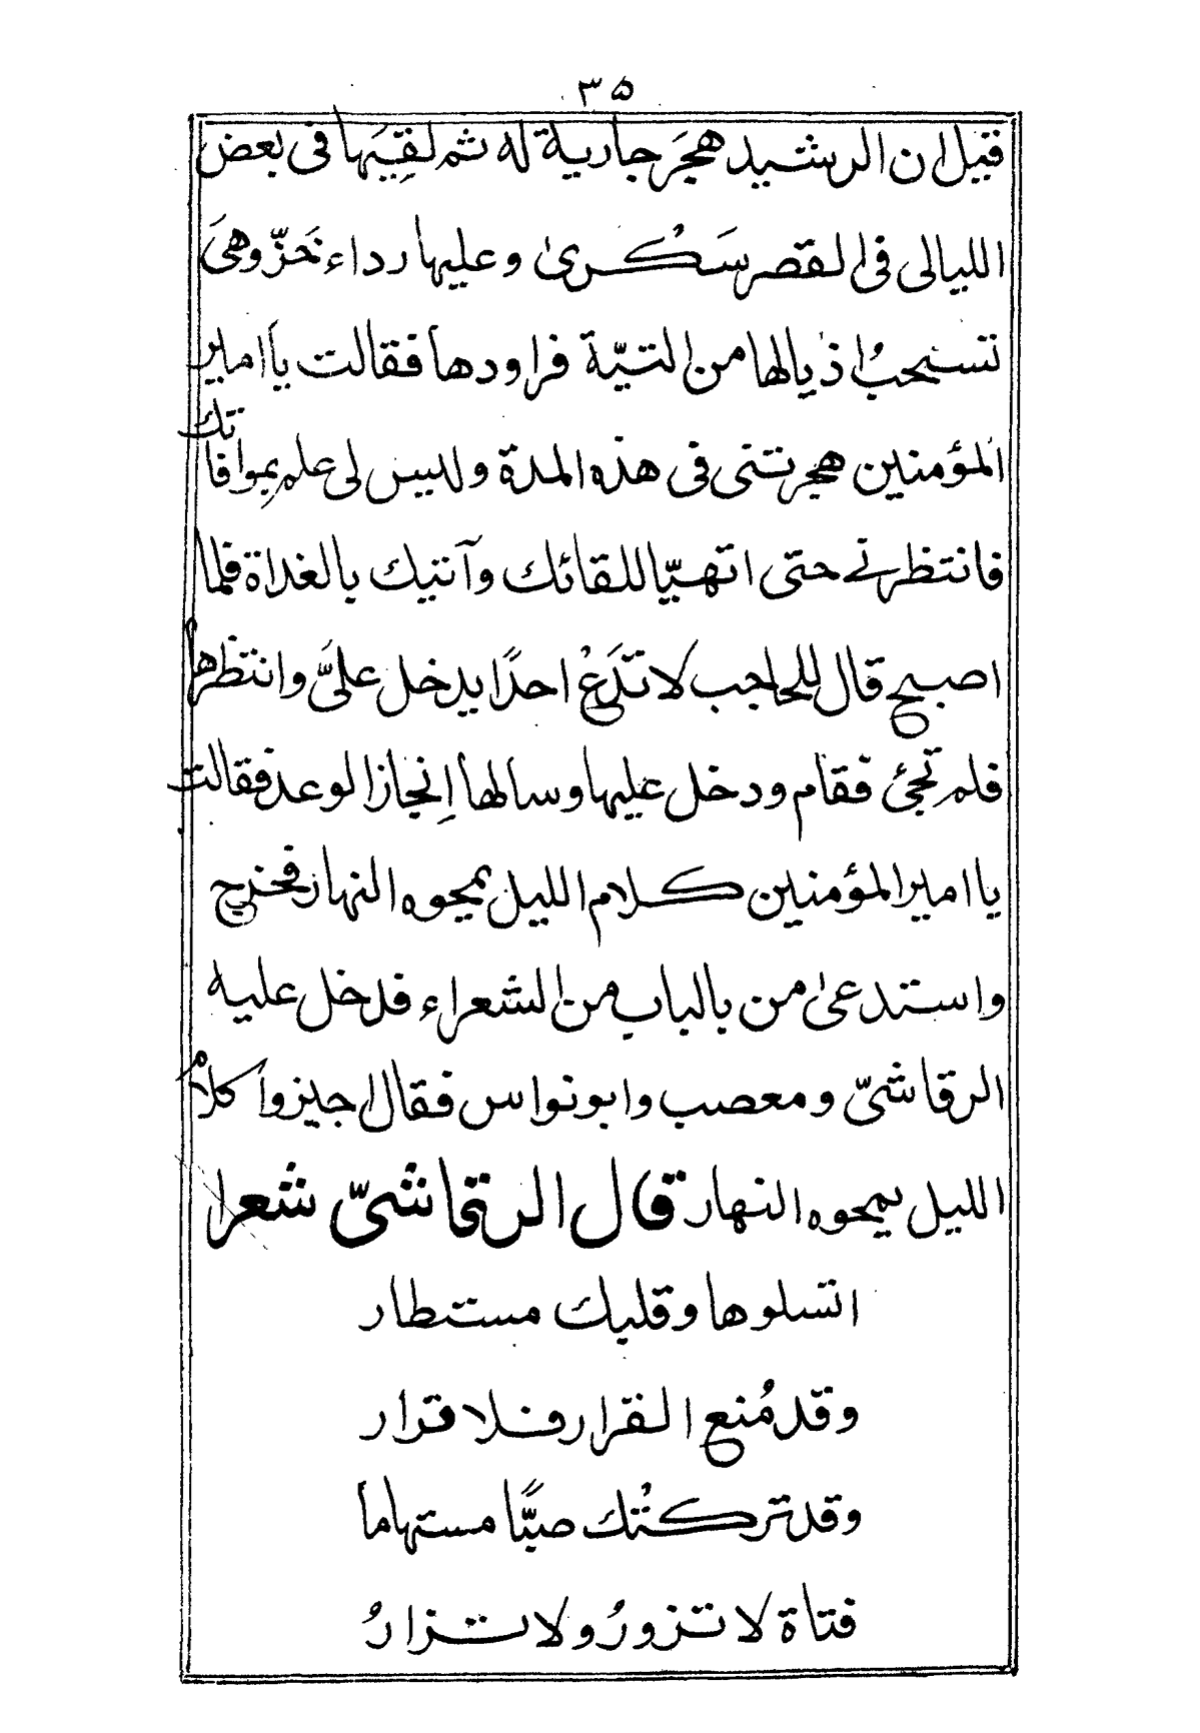 ٣٥
قيل ان الرشيد هجَر جارية له ثم لقِيَها فى بعض
الليالى فى القصر سَكْرى وعليها رداء خَزّ وهىَ
تسحبُ اذيالها من التيّة فراودها فقالت يا امير
المؤمنين هجرتنى فى هذه المدة وليس لى علم بِموافاتك
فانتظرنے حتى اتهيّا للقائك وآتيك بالغداة فلما
اصبح قال للحاجب لا تَدَعْ احدًا يدخل علىَّ وانتظرها
فلم تجئ فقام ودخل عليها وسالها اِنجاز الوعد فقالت
يا امير المؤمنين كلام الليل يمحوه النهار فخرج
واستدعى من بالباب من الشعراء فدخل عليه
الرقاشىّ ومعصب وابونواس فقال اجيزوا كلامُ
الليل يمحوه النهار قال الرقاشىّ شعرا
اتسلوها وقلبك مستطار
وقد مُنع القرار فلا قرار
وقد تركتْك صبًّا مستهاما
فتاة لا تزورُ ولا تزارُ